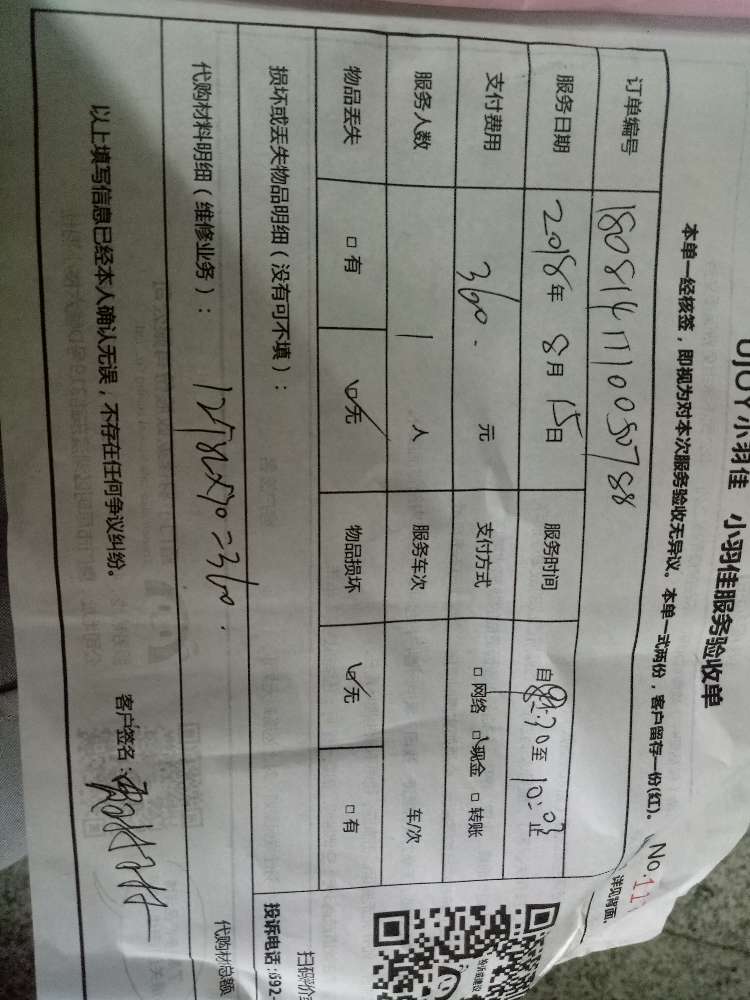 UJOY小羽佳 小羽佳服务验收单
本单一经核签，即视为对本次服务验收无异议。本单一式两份，客户留存一份(红)。 No:11
详见背面.
订单编号 1808141710050788
服务日期 2018年 8月 15日 服务时间 自 :30至 10:03止
支付费用 360. 元 支付方式 □ 网络 □ 现金 □ 转账
服务人数 1 人 服务车次 车/次
物品丢失 □ 有 □ 无 物品损坏 □ 无 □ 有
损坏或丢失物品明细（没有可不填）：
代购材料明细（维修业务）： =360.
以上填写信息已经本人确认无误，不存在任何争议纠纷。 客户签名：
代购材总额
投诉电话:692-
扫码